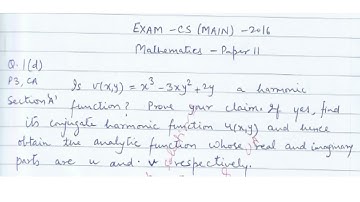 EXAM - CS (MAIN) - 2016
Mathematics - Paper II
Q.1(d)
P3, CA Is v(x,y) = x³ - 3xy² + 2y a harmonic
Section 'A' function? Prove your claim. If yes, find
its conjugate harmonic function u(x,y) and hence
obtain the analytic function whose real and imaginary
parts are u and v respectively.